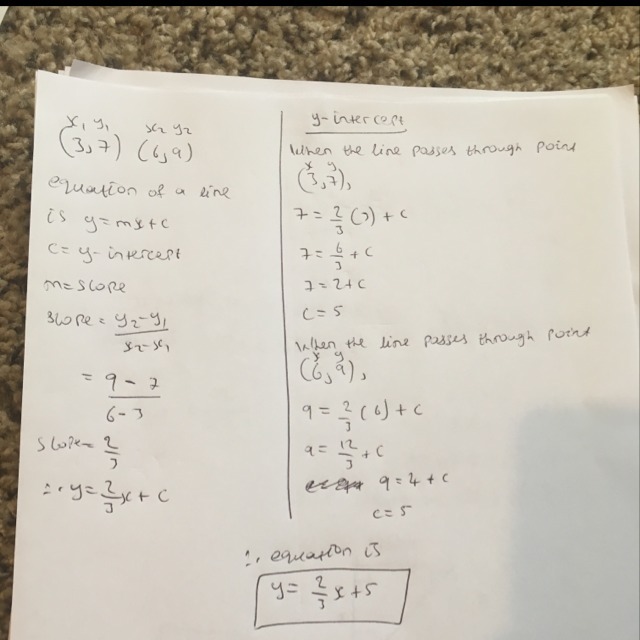 x₁ y₁ x₂ y₂
(3,7) (6,9)
equation of a line
is y=mx+c
c= y-intercept
m=slope
slope= y₂-y₁
x₂-x₁
= 9 - 7
6-3
slope= 2/3
∴ y= 2/3 x + c
y-intercept
When the line passes through point
x y
(3,7),
7= 2/3 (3) + c
7= 6/3 + c
7= 2+c
c = 5
When the line passes through point
x y
(6,9),
9= 2/3 (6) + c
9= 12/3 + c
9=4+c
c=5
∴ equation is
y= 2/3 x+5